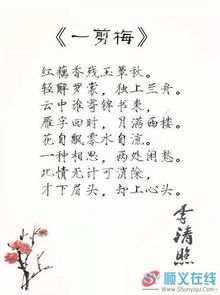 《一剪梅》
红藕香残玉簟秋。
轻解罗裳，独上兰舟。
云中谁寄锦书来，
雁字回时，月满西楼。
花自飘零水自流。
一种相思，两处闲愁。
此情无计可消除，
才下眉头，却上心头。
李清照
顺义在线
www.Shunyiqu.com